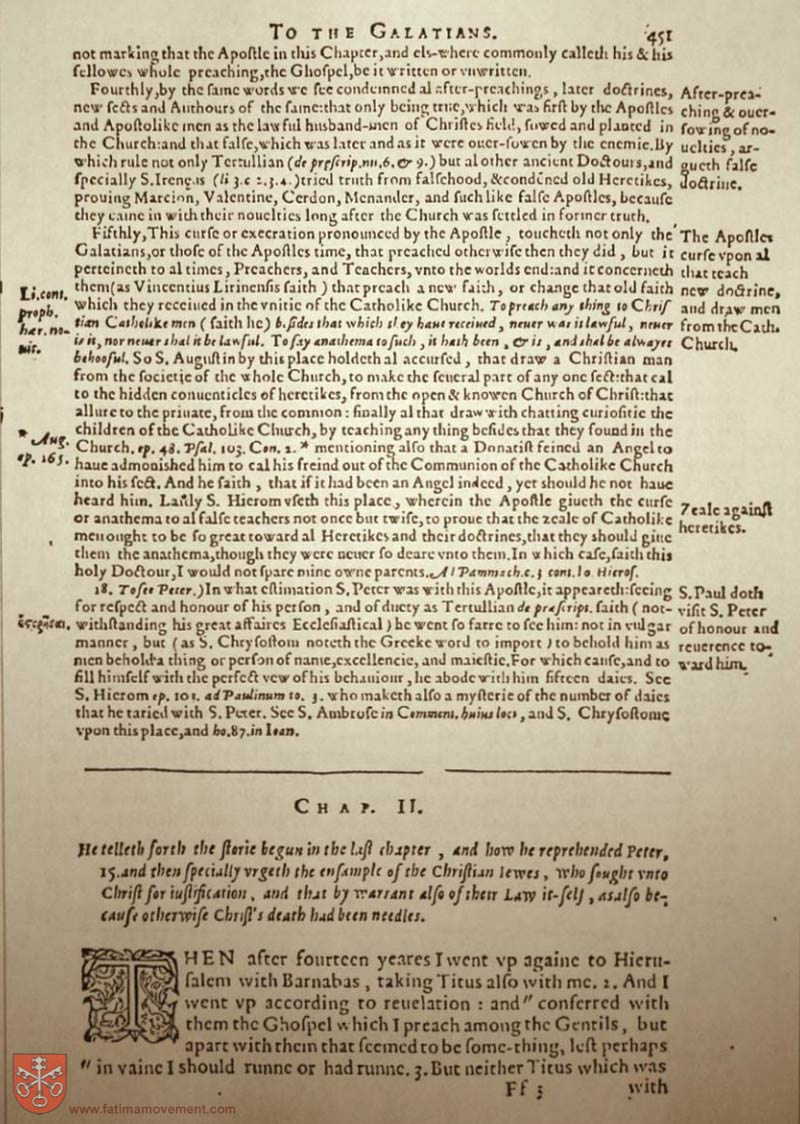 To the Galatians.
451
not marking that the Apoſtle in this Chapter, and els-where commonly calleth his & his
fellowes whole preaching, the Ghoſpel, be it written or vnwritten.
Fourthly, by the ſame words we ſee condemned al after-preachings, later doctrines,
new ſects and Authours of the ſame: that only being true, which was firſt by the Apoſtles
and Apoſtolike men as the lawful husband-men of Chriſtes field, ſowed and planted in
the Church: and that falſe, which was later and as it were ouer-ſowen by the enemie. By
which rule not only Tertullian (de preſcrip. nu. 6. & 9.) but al other ancient Doctours, and
ſpecially S. Irenęus (li 3. c 2. 3. 4.) tried truth from falſehood, & condēned old Heretikes,
prouing Marcion, Valentine, Cerdon, Menander, and ſuch like falſe Apoſtles, becauſe
they came in with their nouelties long after the Church was ſettled in former truth.
Fifthly, This curſe or execration pronounced by the Apoſtle, toucheth not only the
Galatians, or thoſe of the Apoſtles time, that preached otherwiſe then they did, but it
perteineth to al times, Preachers, and Teachers, vnto the worlds end: and it concerneth
them (as Vincentius Lirinenſis ſaith) that preach a new faith, or change that old faith
which they receiued in the vnitie of the Catholike Church. To preach any thing to Chriſ
tian Catholike men (ſaith he) beſides that which they haue receiued, neuer was it lawful, neuer
is it, nor neuer ſhal it be lawful. To ſay anathema to ſuch, it hath been, & is, and ſhal be alwayes
behooful. So S. Auguſtin by this place holdeth al accurſed, that draw a Chriſtian man
from the ſocietie of the whole Church, to make the ſeueral part of any one ſect: that cal
to the hidden conuenticles of heretikes, from the open & knowen Church of Chriſt: that
allure to the priuate, from the common: finally al that draw with chatting curioſitie the
children of the Catholike Church, by teaching any thing beſides that they found in the
Church. ep. 48. Pſal. 103. Con. 2. * mentioning alſo that a Donatiſt feined an Angel to
haue admoniſhed him to cal his freind out of the Communion of the Catholike Church
into his ſect. And he ſaith, that if it had been an Angel indeed, yet ſhould he not haue
heard him. Laſtly S. Hierom vſeth this place, wherein the Apoſtle giueth the curſe
or anathema to al falſe teachers not once but twiſe, to proue that the zeale of Catholike
men ought to be ſo great toward al Heretikes and their doctrines, that they ſhould giue
them the anathema, though they were neuer ſo deare vnto them. In which caſe, ſaith this
holy Doctour, I would not ſpare mine owne parents. Ad Pammach. c. 3 cont. Io. Hieroſ.
18. To ſee Peter.) In what eſtimation S. Peter was with this Apoſtle, it appeareth: ſeeing
for reſpect and honour of his perſon, and of duety as Tertullian de præſcript. ſaith (not-
withſtanding his great affaires Eccleſiaſtical) he went ſo farre to ſee him: not in vulgar
manner, but (as S. Chryſoſtom noteth the Greeke word to import) to behold him as
men behold a thing or perſon of name, excellencie, and maieſtie. For which cauſe, and to
fill himſelf with the perfect vew of his behauiour, he abode with him fifteen daies. See
S. Hierom ep. 101. ad Paulinum to. 3. who maketh alſo a myſterie of the number of daies
that he taried with S. Peter. See S. Ambroſe in Comment. huius loci, and S. Chryſoſtome
vpon this place, and ho. 87. in Ioan.
After-prea-
ching & ouer-
ſowing of no-
uelties, ar-
gueth falſe
doctrine.
The Apoſtles
curſe vpon al
that teach
new doctrine,
and draw men
from the Cath.
Church.
Zeale againſt
heretikes.
S. Paul doth
viſit S. Peter
of honour and
reuerence to-
ward him.
Li. cont.
proph.
hær. no-
uit.
* Aug.
ep. 165.
Chap. II.
He telleth forth the ſtorie begun in the laſt chapter, and how he reprehended Peter,
15. and then ſpecially vrgeth the enſample of the Chriſtian Iewes, who ſought vnto
Chriſt for iuſtification, and that by warrant alſo of their Law it-ſelf, as alſo be-
cauſe otherwiſe Chriſt's death had been needles.
THEN after fourteen yeares I went vp againe to Hieru-
ſalem with Barnabas, taking Titus alſo with me. 2. And I
went vp according to reuelation: and " conferred with
them the Ghoſpel which I preach among the Gentils, but
apart with them that ſeemed to be ſome-thing, leſt perhaps
" in vaine I ſhould runne or had runne. 3. But neither Titus which was
Ff 3
with
www.fatimamovement.com